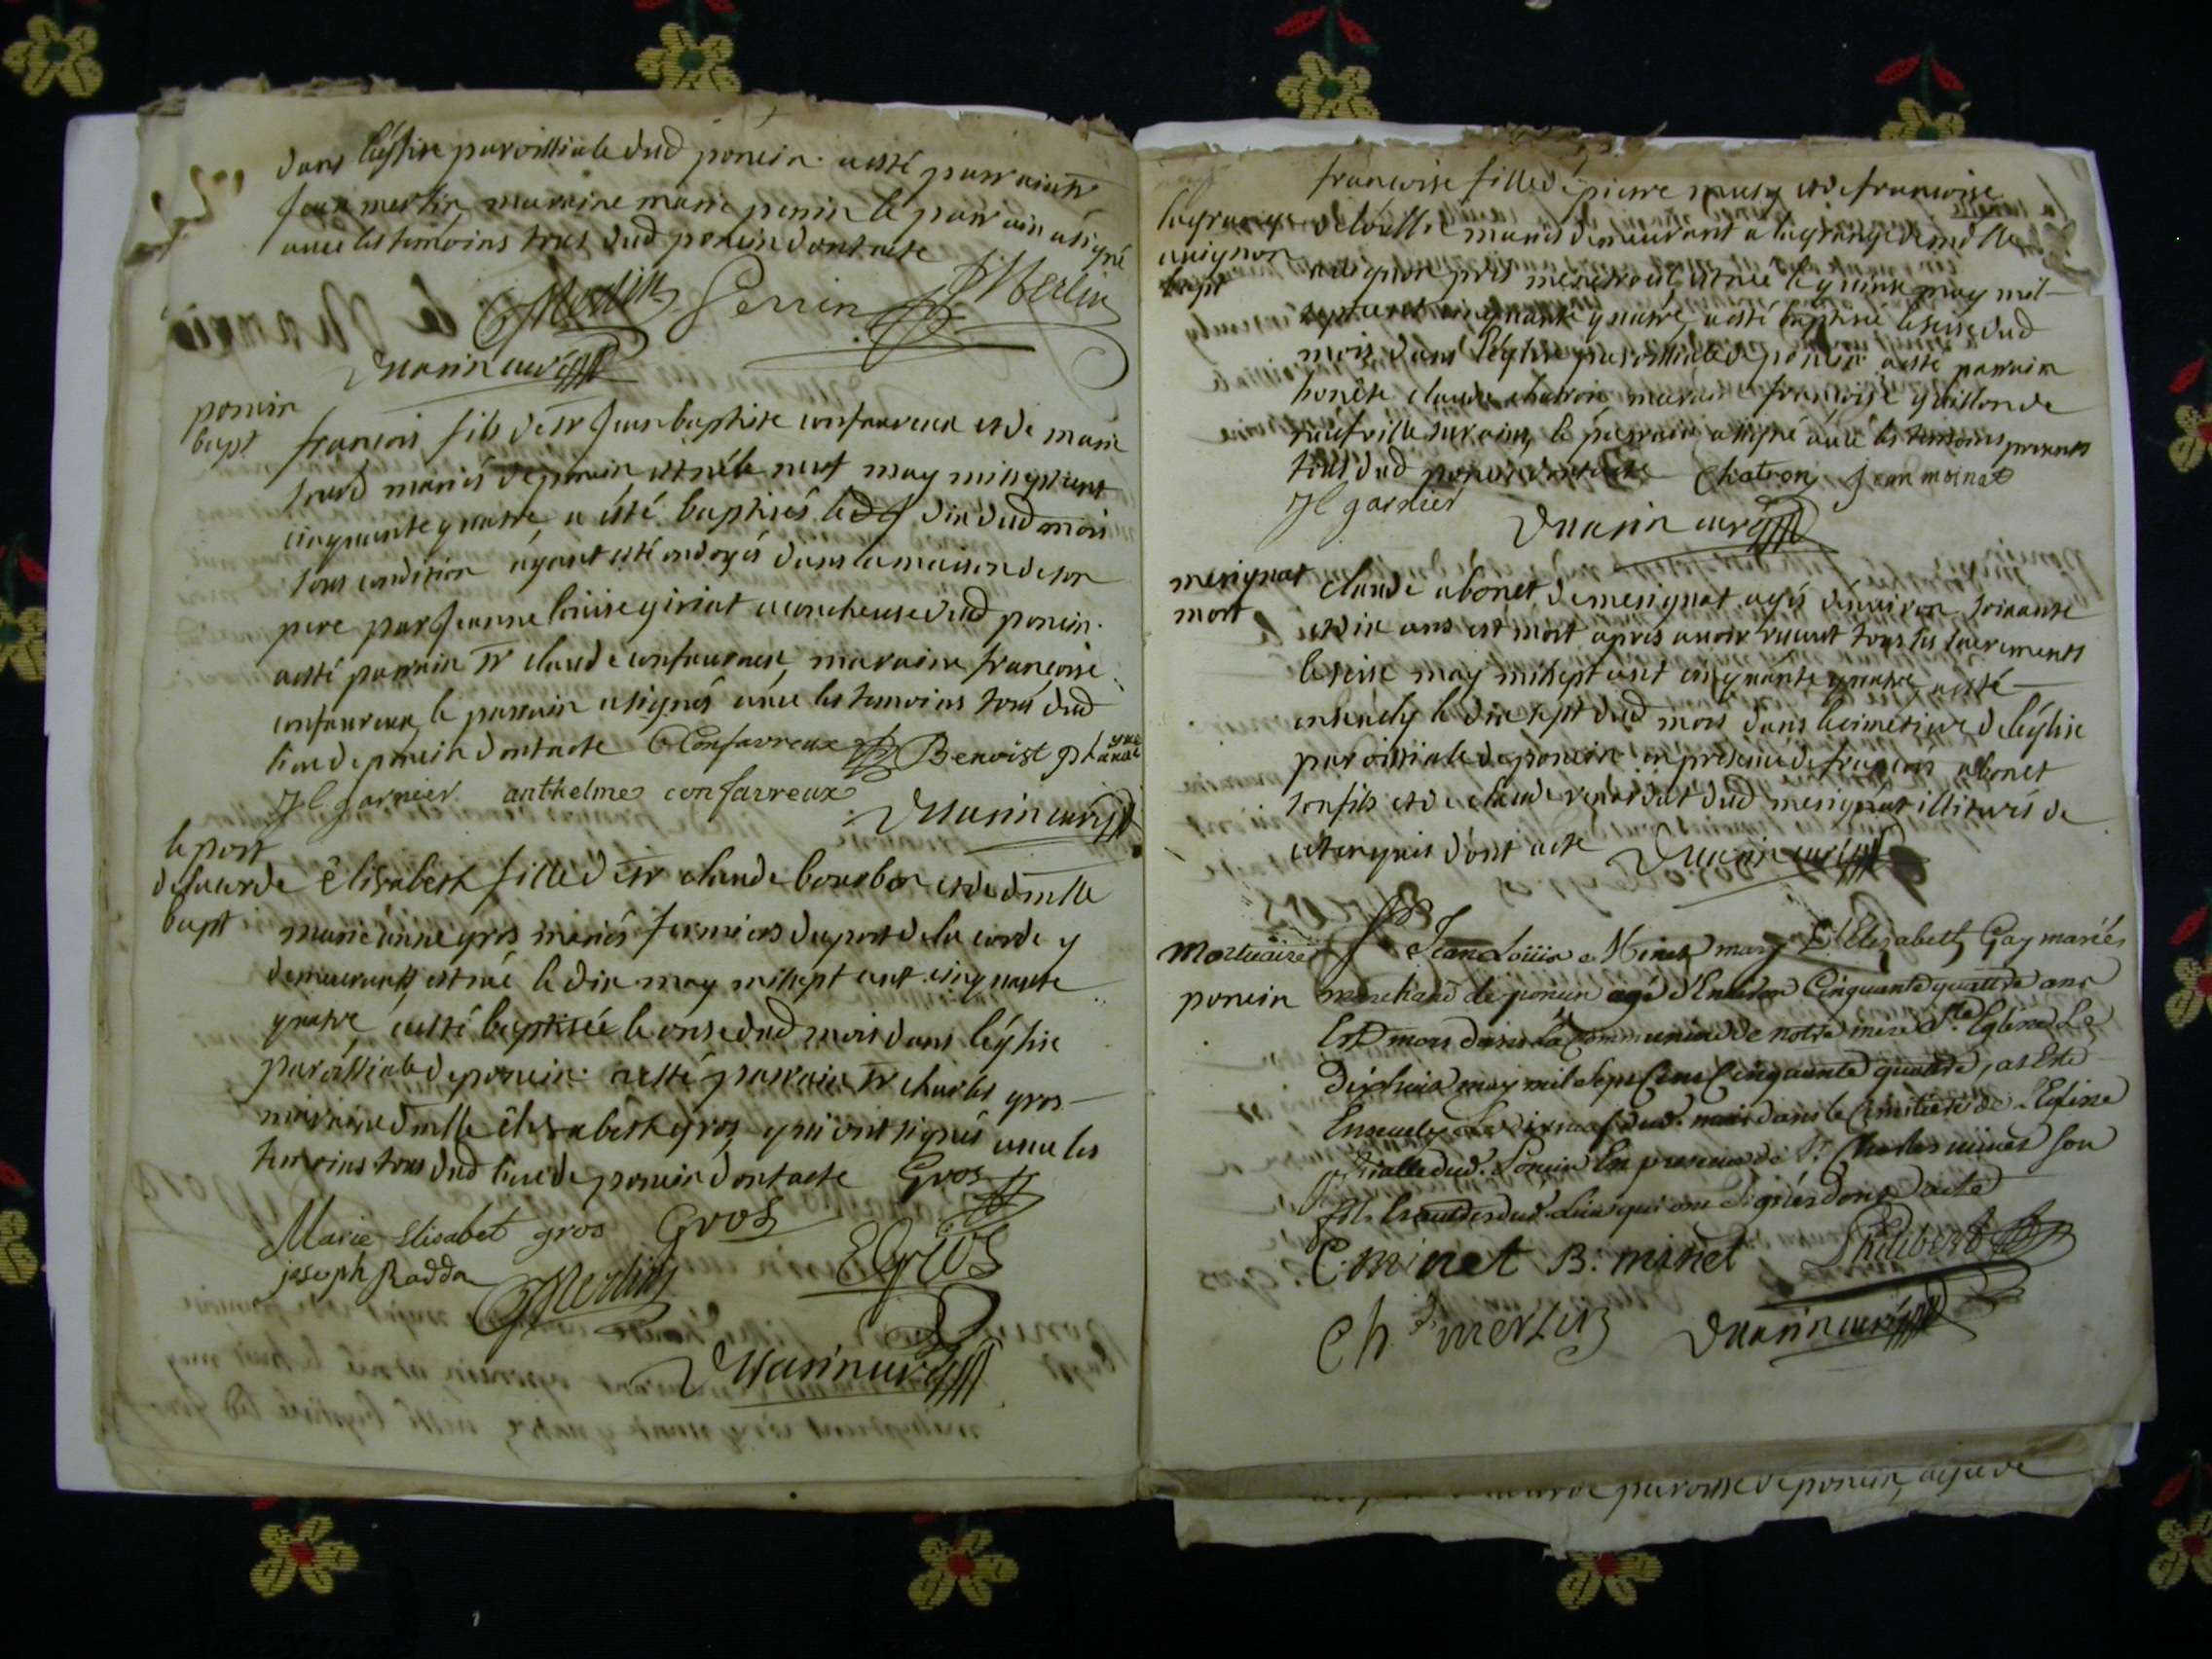 dans léglise paroissiale dud poncin. a esté parrain sr
Jean merlin, marraine marie perrin le parrain a signé
avec les temoins tous dud poncin dont acte
Merlin Perrin Merlin
curé
poncin
bapt
francois fils de sr Jean baptiste confavreux et de marie
mariés de poncin est né le neuf may mil sept cent
cinquante quatre, a été baptisés le dix dud mois
sous condition ayant esté ondoyés dans la maison de son
pere par Jeanne louise giriat acoucheuse dud poncin.
a esté parrain sr claude confavreux, marraine françoise
confavreux, le parrain a signés avec les temoins tous dud
lieu de poncin dont acte C Confavreux Benoist
Jl garnier anthelme confavreux
curé
le port
de la corde
bapt
élisabeth fille de sr claude bourbon et de dmlle
marie anne gros mariés fermiers du port de la corde y
demeurants, est née le dix may mil sept cent cinquante
quatre, a esté baptisée le onse dud mois dans léglise
paroissiale de poncin. a esté parrain sr charles gros
marraine dmlle élisabeth gros, qui ont signés avec les
temoins tous dud lieu de poncin dont acte Gros
Marie Elisabet gros Gros
joseph Radda Merlin EGros
curé
francoise fille de pierre musy et de francoise
lagrange
avignon
bapt
mariés demeurant a lagrange de mlle
avignon près est née le quinse may mil
sept cent cinquante quatre, a esté baptisée le seise dud
mois dans léglise paroissiale de poncin a esté parrain
honête claude chatron marraine françoise de
neufville sur ains, le parrain a signé avec les temoins
tous dud poncin dont acte Chatron Jean moinat
Jl garnier
curé
mesignat
mort
claude abonet de mesignat agés d'environ soixante
et dix ans est mort après avoir receut tous les sacrements
le seise may mil sept cent cinquante quatre, a esté
ensevely le dix sept dud mois dans le cimetiere de léglise
paroissiale de poncin en présence de françois abonet
son fils et de claude dud mesignat illiterés de
ce enquis dont acte
curé
Mortuaire
poncin
Jean Louis Minet mary Elizabeth Gay mariés
marchand de poncin agé d'Environ Cinquante quattre ans
Est mort dans la Communion de notre mere Ste Eglise Le
Dixhuit may mil sept Cent Cinquante quattre, at Esté
Ensevely Le dixneuf dud. mois dans le Cimitiere de L'Eglise
dud. Poncin En presence de Sr Charles minet son
fils dud. Lieu qui ont Signés dont acte
C. minet B. minet Philibert
Ch merlin
curé
paroisse de poncin, agée de